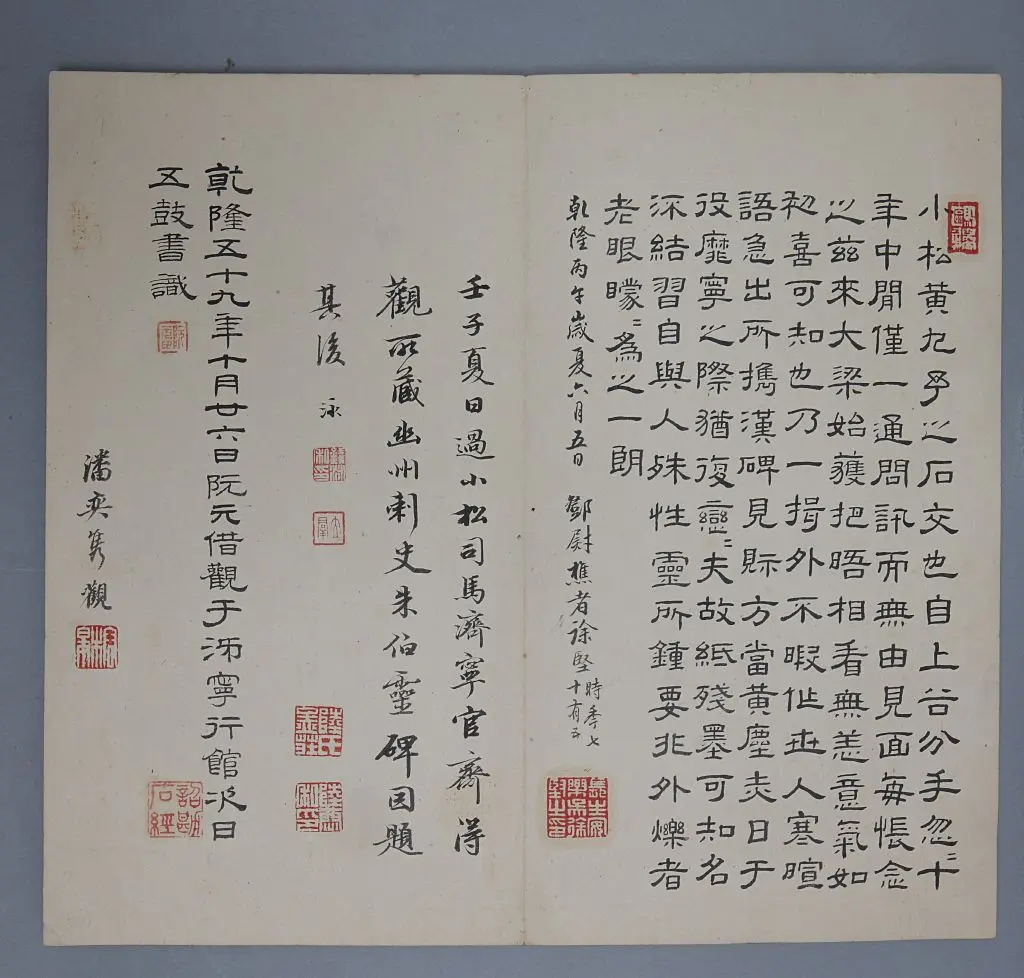 小松黃九予之石交也自上谷分手忽〻十
年中間僅一通問訊而無由見面每悵念
之茲來大梁始獲把晤相看無恙意氣如
初喜可知也乃一揖外不暇作世人寒暄
語急出所攜漢碑見眎方當黃塵炎日于
役靡寧之際猶復戀〻夫故紙殘墨可知名
深結習自與人殊性靈所鍾要非外爍者
老眼矇〻為之一朗
乾隆丙午歲夏六月五日 鄧尉樵者徐堅時季七十有五
壬子夏日過小松司馬濟寧官齋得
觀所藏幽州刺史朱伯靈碑因題
其後 泳
乾隆五十九年十月廿六日阮元借觀于泲寧行館次日
五鼓書識
詔勘
石經
潘奕雋觀